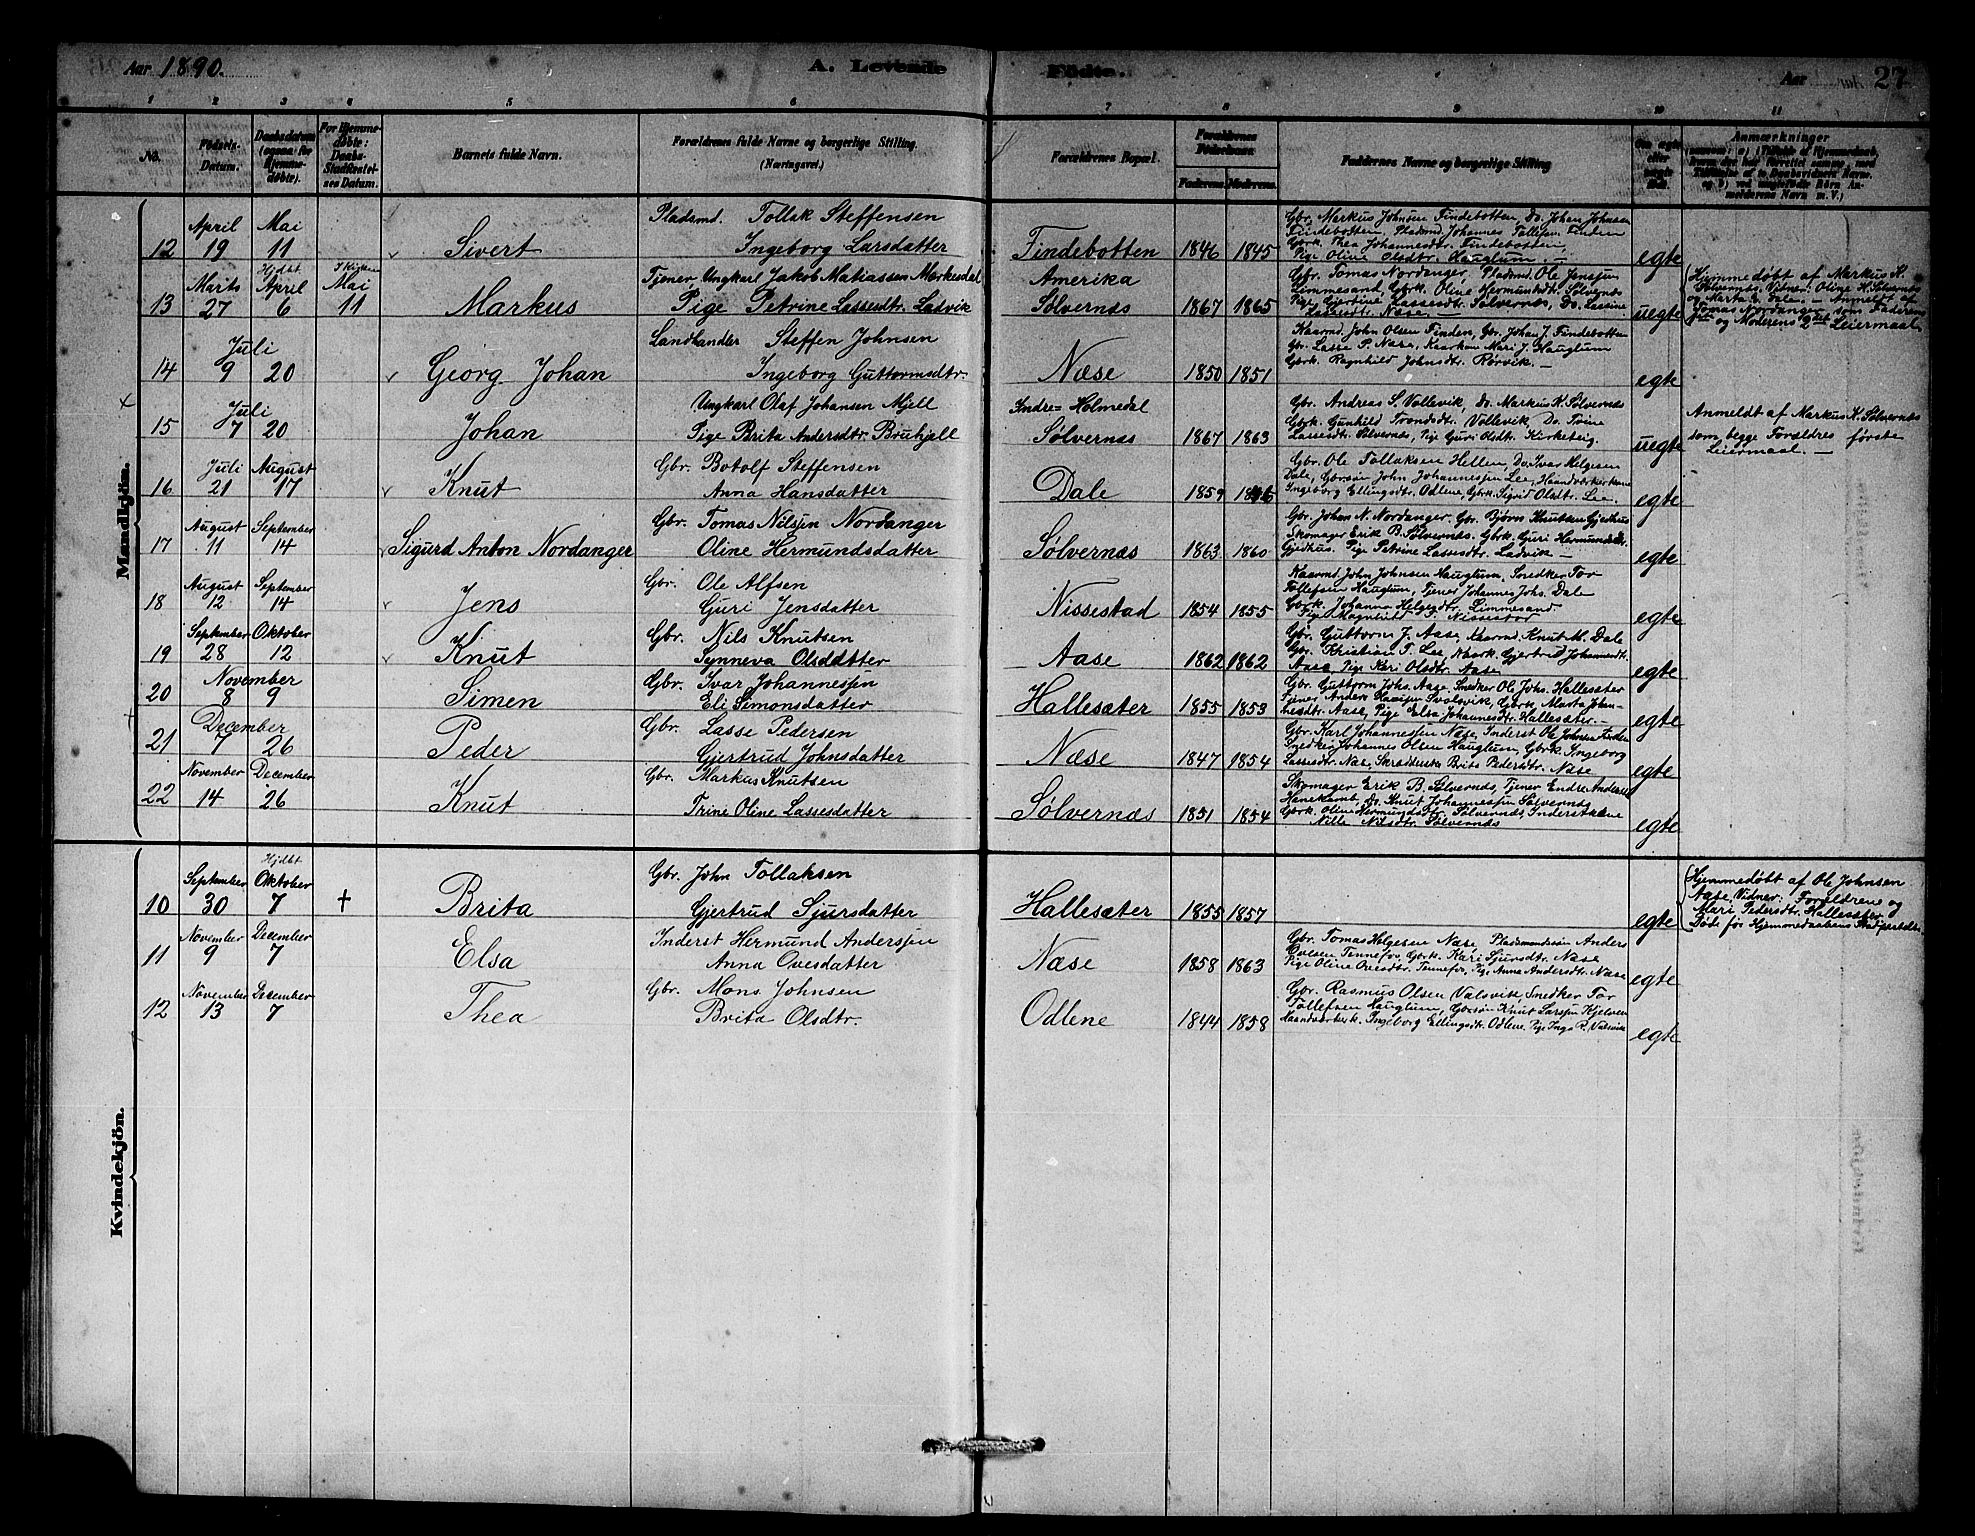 Aar 1890. A. Levende Fødte. Aar 27
1 2 3 4 5 6 7 8 9 10 11
No. Fødsels-Datum. Daabsdatum (ogsaa for Hjemmedøbte). For Hjemmedøbte: Daabs-Stadfæstelses Datum. Barnets fulde Navn. Forældrenes fulde Navne og borgerlige Stilling. (Næringsvei.) Forældrenes Bopæl. Forældrenes Fødselsaar. Faderens. Moderens. Faddernes Navne og borgerlige Stilling Om ægte eller uægte født. Anmærkninger
Mandkjön.
12 April 19 Mai 11 Sivert
Pladsmd. Tollak Steffensen
Ingeborg Larsdatter
Findebotten 1846 1845
Gbr. Markus Johnsen Findebotten, Do. Johan Johnsen
Findebotten, Pladsmd. Johannes Tollefsen Finden
Gbrk. Thea Johannesdtr. Findebotten,
Pige Oline Olsdtr. Hauglum. —
egte
13 Marts 27 Hjdbt April 6 I Kirken Mai 11 Markus
Tjener, Ungkarl Jakob Matiassen Markesdal
Pige Petrine Lassesdtr. Ladvik
Amerika
Sølvernæs 1867 1865
Gbr. Tomas Nordanger, Pladsmd. Ole Jensen
Limmesand, Gbrk. Oline Hermundsdt. Sølvernæs
Pige Gjertine Lassesdtr. Sølvernæs, Do. Lassine
Lassesdtr. Næse. —
uegte
Hjemmedøbt af Markus K.
Sølvernæs. Vidner: Oline H. Sølvernæs
og Marta Dale. — Anmeldt af
Tomas Nordanger som Faderens
1ste og Moderens 2det Leiermaal
14 Juli 9 20 Georg Johan
Landhandler Steffen Johnsen
Ingeborg Guttormsdtr.
Næse 1850 1851
Kaarmd. John Olsen Finden, Gbr. Johan J. Findebotten
Gbr. Lasse P. Næse, Kaarkone Mari J. Hauglum
Gbrk. Ragnhild Johnsdtr. Rørvik. —
egte
15 Juli 7 20 Johan
Ungkarl Olaf Johansen Mjell
Pige Brita Andersdtr. Bruhjell
Indre= Holmedal
Sølvernæs 1867 1863
Gbr. Andreas S. Vollevik, Do. Markus K. Sølvernæs
Gbrk. Gunhild Trondsdtr. Vollevik, Do. Trine
Lassesdtr. Sølvernæs, Pige Guri Olsdtr. Kirketeig.
uegte
Anmeldt af Markus K. Sølvernæs
som begge Forældres første
Leiermaal. —
16 Juli 21 August 17 Knut
Gbr. Botolf Steffensen
Anna Hansdatter
Dale 1859
Gbr. Ole Tollaksen Hellen, Do. Ivar Helgesen
Dale, Gbrsøn John Johannesen Lee, Haandverkerkone
Ingeborg Ellingsdtr. Odlene, Gbrk. Sigrid Olsdtr. Lee.
egte
17 August 11 September 14 Sigurd Anton Nordanger
Gbr. Tomas Nilsen Nordanger
Oline Hermundsdatter
Sølvernæs 1863 1860
Gbr. Johan N. Nordanger. Gbr. Bjørn Knutsen Gjedhus
Skomager Erik B. Sølvernæs. Gbrk. Guri Hermundsdtr.
Gjedhus. Pige Petrine Lassesdtr. Ladvik —
egte
18 August 12 September 14 Jens
Gbr. Ole Alfsen
Guri Jensdatter
Nissestad 1854 1855
Kaarmd. John Johnsen Hauglum, Snedker Tor
Tollefsen Hauglum, Tjener Johannes Johs. Dale
Gbrk. Johanna Helgesdtr. Limmesand
egte
19 September 28 Oktober 12 Knut
Gbr. Nils Knutsen
Synneva Olsdatter
Aase 1862 1862
Gbr. Guttorm J. Aase, Kaarmd. Knut M. Dale
Gbr. Kristian T. Lee, Kaark. Gjertrud Johannesdt.
Aase, Pige Kari Olsdtr. Aase.
egte
20 November 8 9 Simen
Gbr. Ivar Johannessen
Eli Simonsdatter
Hallesæter 1855 1853
Gbr. Guttorm Johs. Aase, Snedker Ole Johs. Hallesæter
Tjener Anders Svalvik, Gbrk. Marta Johan-
nesdtr. Aase, Pige Elsa Johannesdtr. Hallesæter. —
egte
21 December 7 26 Peder
Gbr. Lasse Pedersen
Gjertrud Johnsdatter
Næse 1847 1854
Gbr. Karl Johannessen Næse, Inderst Ole Johnsen Finden
Snedker Johannes Olsen Hauglum, Gbrk. Ingeborg
Lassesdtr. Næse, Brita Pedersdtr. Næse
egte
22 November 14 December 26 Knut
Gbr. Markus Knutsen
Trine Oline Lassesdatter
Sølvernæs 1851 1854
Skomager Erik B. Sølvernæs, Tjener Endre Anders
Hanekamb, Do. Knut Johannessen Sølvernæs
Gbrk. Oline Hermundsdtr. Sølvernæs, Inderstkone
Nille Nilsdtr. Sølvernæs
egte
Kvindekjön.
10 September 30 Hjdbt Oktober 7 † Brita
Gbr. John Tollaksen
Gjertrud Sjursdatter
Hallesæter 1855 1857
egte
Hjemmedøbt af Ole Johnsen
Aase, Vidner: Forældrene og
Mari Pedersdtr. Hallesæter.
Døde før Hjemmedaabens Stadfæstelse
11 November 9 December 7 Elsa
Inderst Hermund Andersen
Anna Ovesdatter
Næse 1858 1863
Gbr. Tomas Helgesen Næse, Pladsmandssøn Anders
Ovesen Tennefos, Gbrk. Kari Sjursdtr. Næse
Pige Oline Ovesdtr. Tennefos, Pige Anna Andersdtr. Næse
egte
12 November 13 December 7 Thea
Gbr. Mons Johnsen
Brita Olsdtr.
Odlene 1844 1858
Gbr. Rasmus Olsen Valsvik, Snedker Tor
Tollefsen Hauglum, Gbrsøn Knut Larsen Kjelven
Haandverkerk. Ingeborg Ellingsdtr. Odlene, Pige Inga R. Valsvik
egte